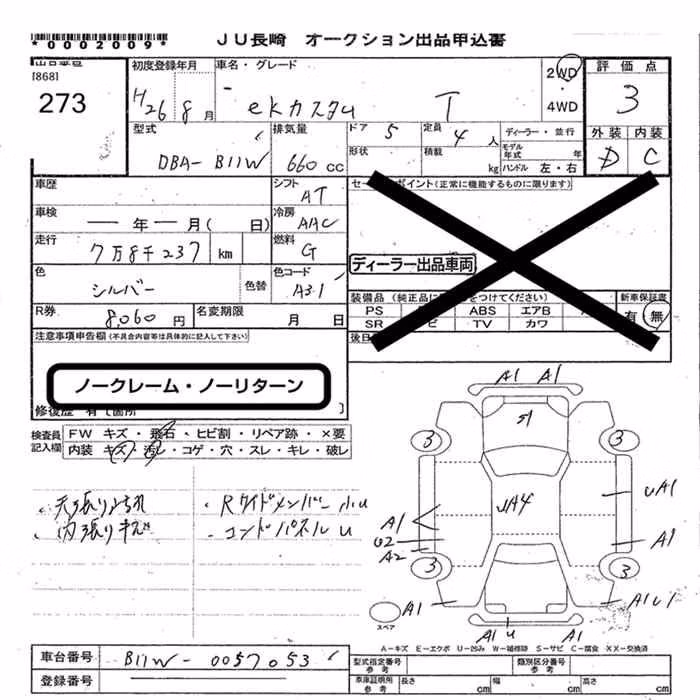 *0002009* JU長崎 オークション出品申込書
[868]
273
初度登録年月 H26 8月
車名・グレード ekカスタム T
2WD
4WD
評価点 3
外装 内装
D C
型式 DBA-B11W
排気量 660cc
ドア 5
定員 4人
ディーラー・並行
形状
積載 kg
モデル年式 年
ハンドル 左・右
車歴
シフト AT
車検 ― 年 ― 月( 日)
冷房 AAC
走行 7万8千237 km
燃料 G
色 シルバー 色替
色コード A31
R券 8,060円
名変期限 月 日
ポイント(正常に機能するものに限ります)
ディーラー出品車両
新車保証書
有 無
PS ABS エアB
SR TV カワ
注意事項申告欄(不具合内容等は具体的に記入して下さい)
ノークレーム・ノーリターン
検査員記入欄
FW キズ・飛石・ヒビ割・リペア跡・×要
内装 キズ・汚レ・コゲ・穴・スレ・キレ・破レ
天張り汚れ
内張りキズ
・Rサイドメンバー小U
・コンドパネルU
A1 A1
S1
3 3
UA4
UA1
A1
U2
A2
A1
3 3
A1
A1U1
スペア
A1U A1
A-キズ E-エクボ U-凹み W-補修跡 S-サビ C-腐食 XX-交換済
車台番号 B11W-0057053
登録番号
型式指定番号 参考
類別区分番号 参考
車庫証明用 参考
長さ cm
幅 cm
高さ cm